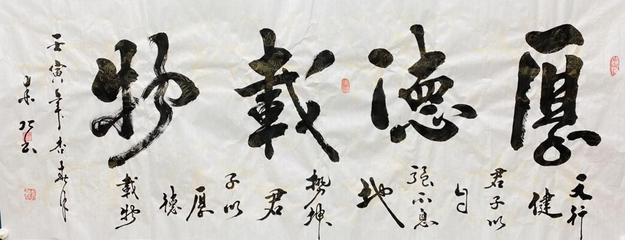 厚德載物
天行
健
君子以
自
强不息
地
勢坤
君
子以
厚
德
載物
壬寅年杏春月